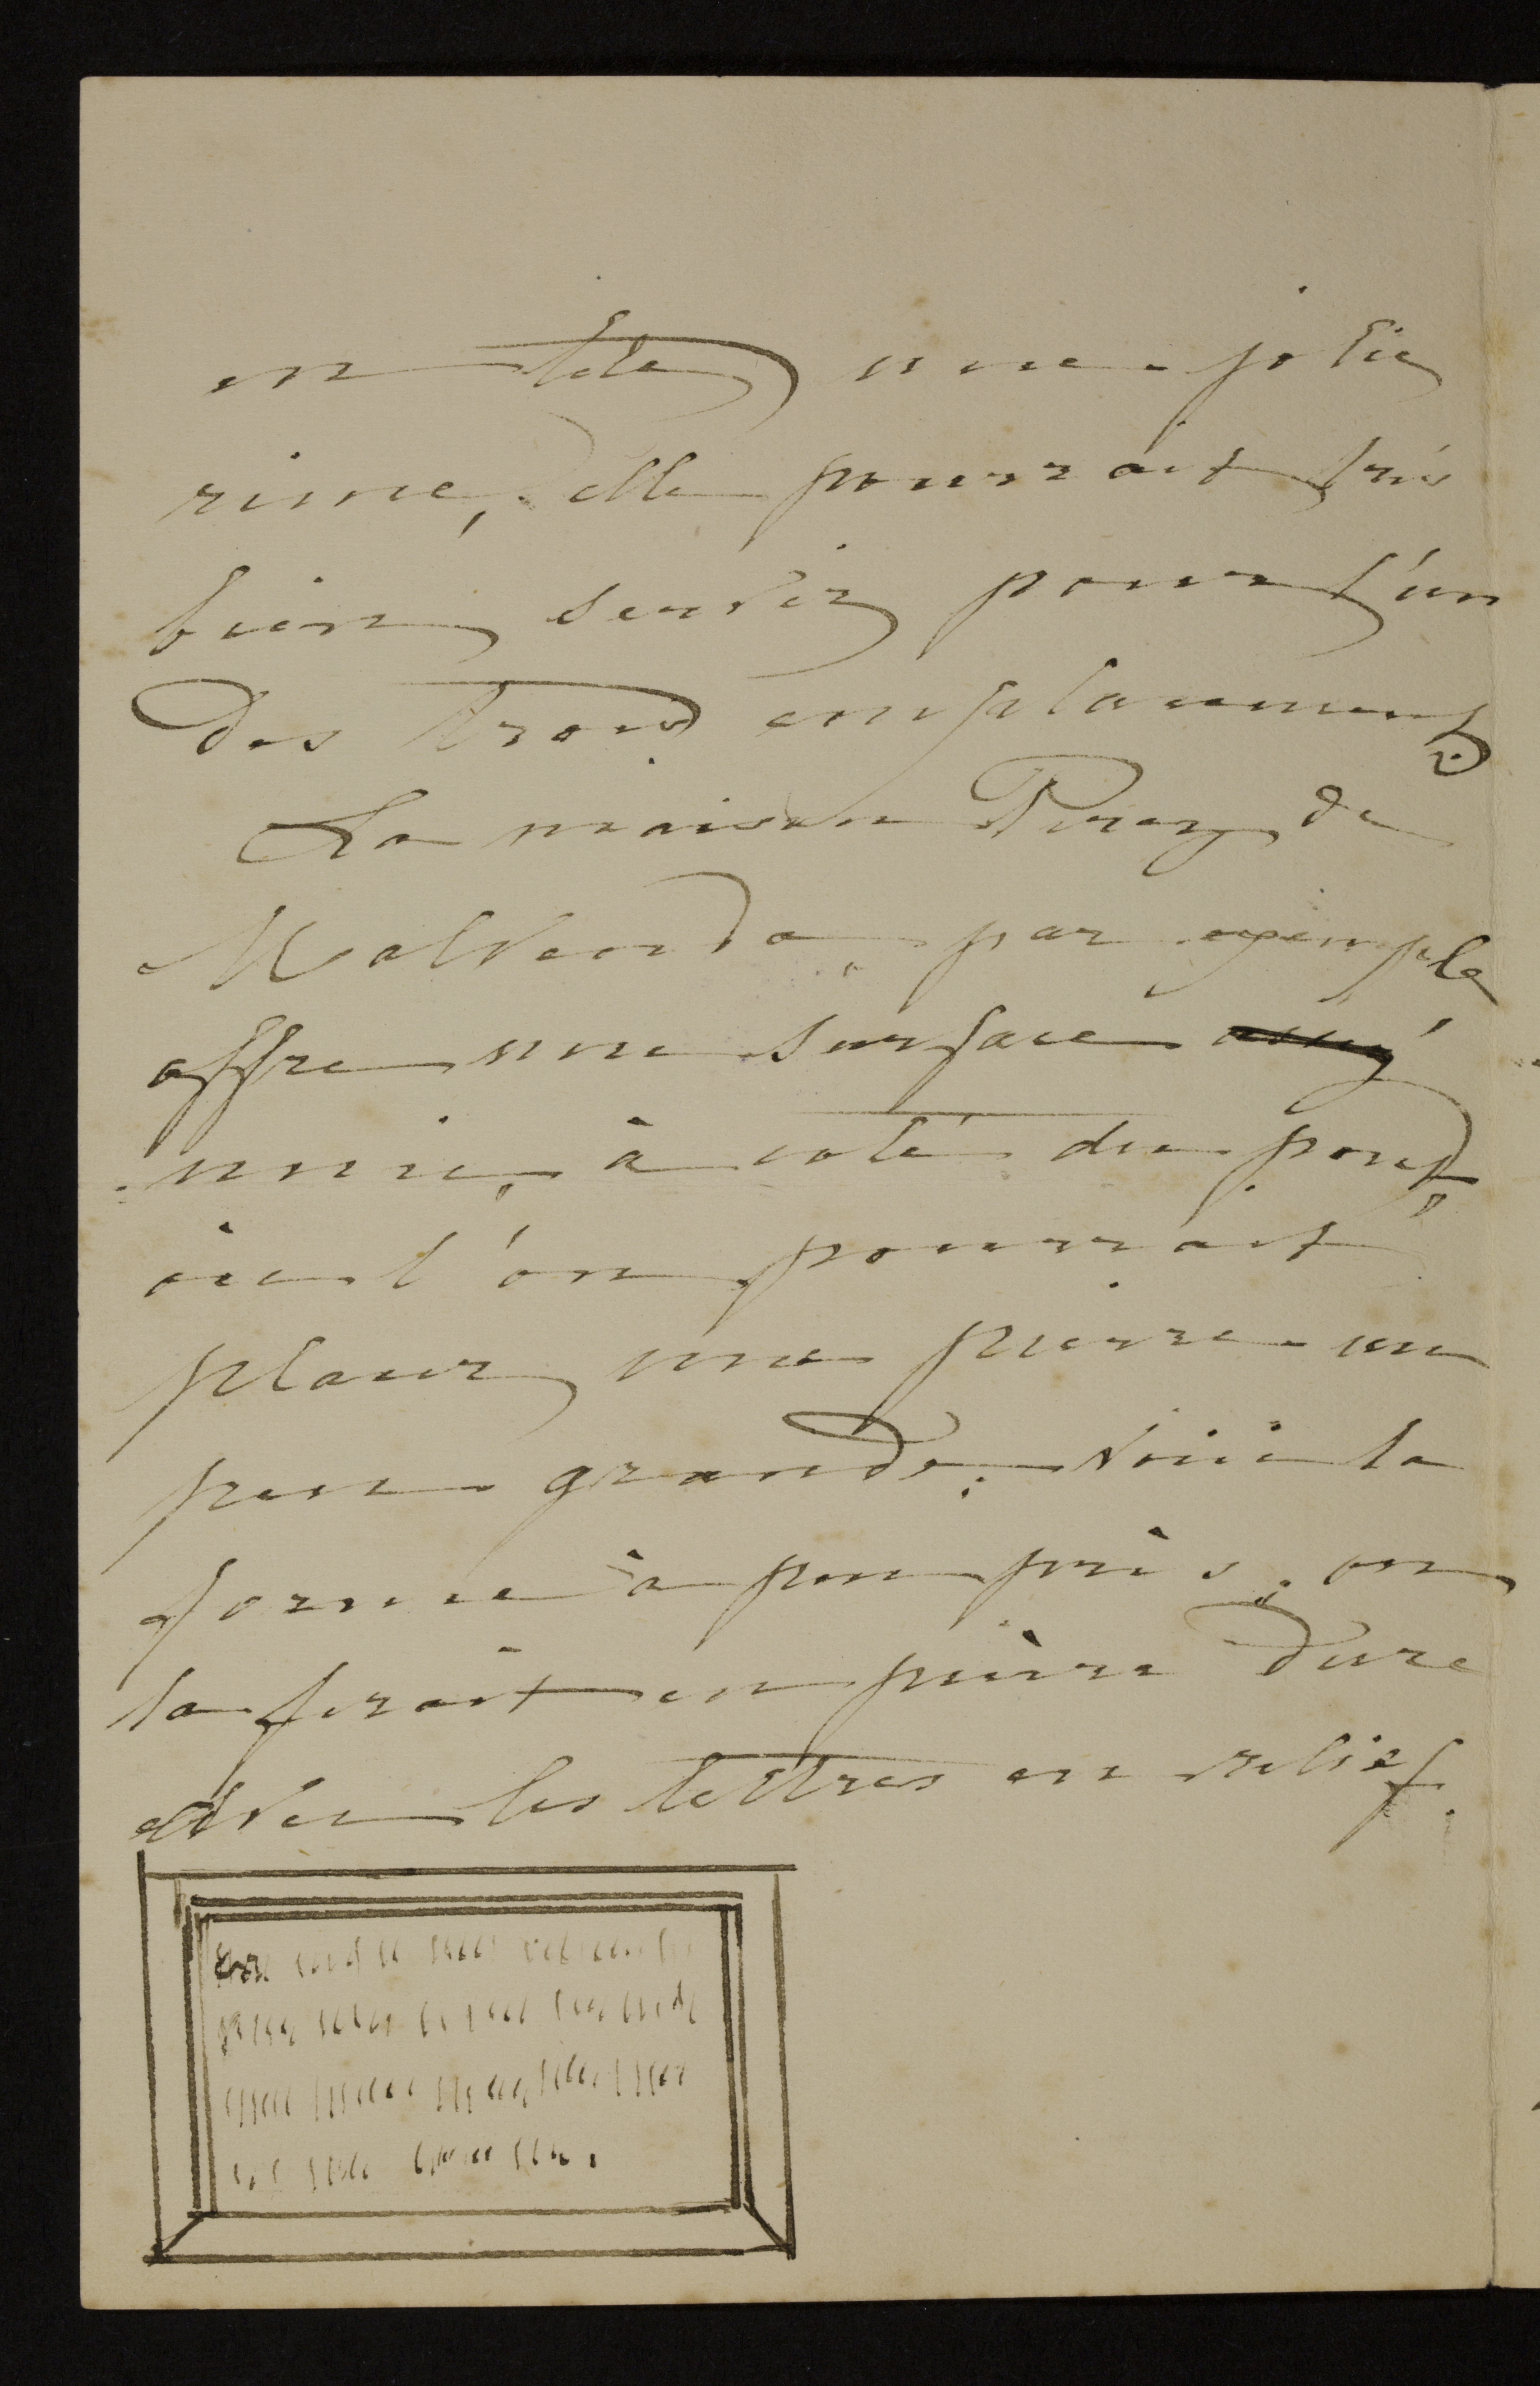 en tête une jolie
rime, elle pourrait très
bien servir pour l'un
des trois emplacements.
La maison Perez de
Malvenda, par exemple
offre une surface
unie, à coté du pont,
où l'on pourrait
placer une pierre un
peu grande. Voici la
forme à peu près, on
la ferait en pierre dure
avec les lettres en relief.